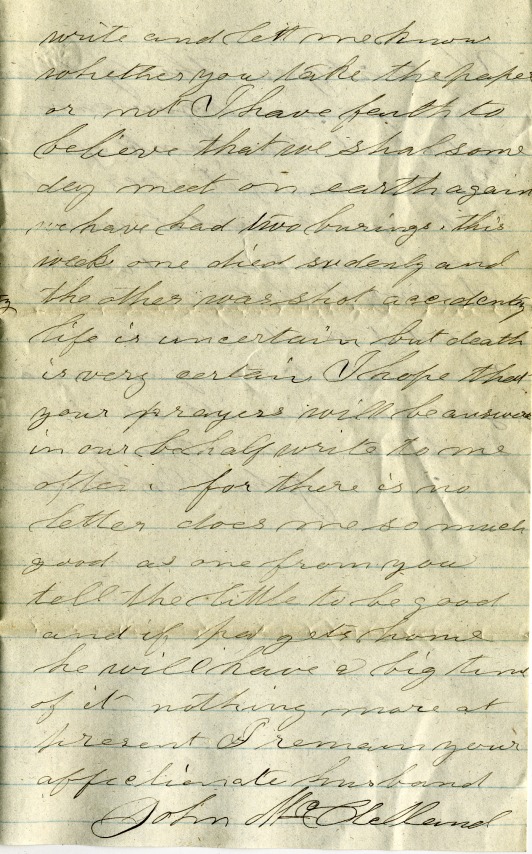 write and lett me know
whether you take the paper
or not I have faith to
believe that we shal some
dey meet on earth again
we have had two burings this
week one died sudenly and
the other was shot accidently
life is uncertain but death
is very certain I hope that
your prayers will be answere
in our behalf write to me
often for there is no
letter does me so much
good as one from you
tell the little to be good
and if pa gets home
he will have a big time
of it nothing more at
present I remain your
affectionate husband
John McClelland